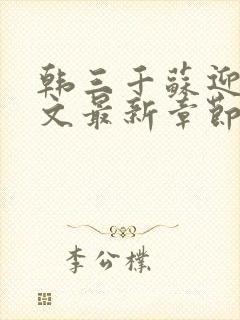 韩三千苏迎
文最新章节
李公朴